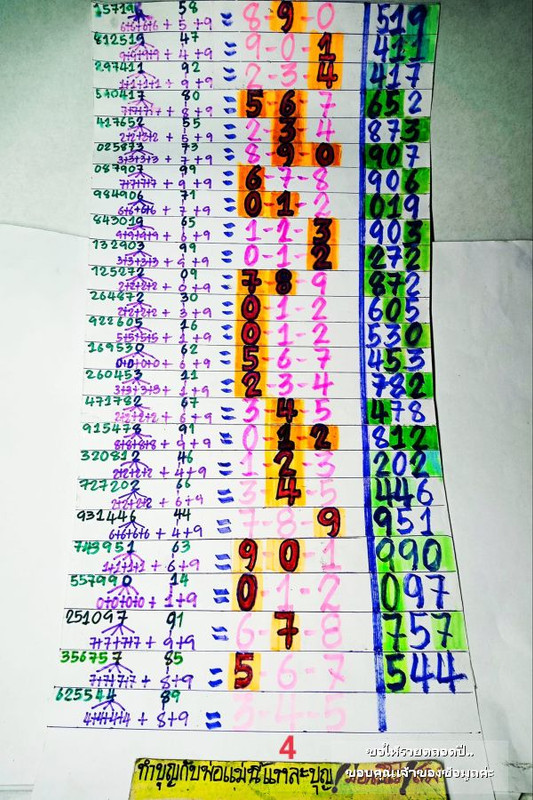 15719 58
6+6+6+6 + 5 +9 = 8-9-0 519
812519 47
9+9+9+9 + 4 +9 = 9-0-1 411
297411 92
1+1+1+1 + 9 +9 = 2-3-4 417
540417 80
7+7+7+7 + 8+9 = 5-6-7 652
417652 55
2+2+2+2 + 5+9 = 2-3-4 873
025873 73
3+3+3+3 + 7+9 = 8-9-0 907
087907 99
7+7+7+7 + 9 +9 = 6-7-8 906
984906 71
6+6+6+6 + 7 +9 = 0-1-2 019
843019 65
9+9+9+9 + 6+9 = 1-2-3 903
132903 99
3+3+3+3 + 9 +9 = 0-1-2 272
125272 09
2+2+2+2 + 0+9 = 7-8-9 872
264872 30
2+2+2+2 + 3 +9 = 0-1-2 605
922605 16
5+5+5+5 + 1 +9 = 0-1-2 530
169530 62
0+0+0+0 + 6 +9 = 5-6-7 453
260453 11
3+3+3+3 + 1+9 = 2-3-4 782
471782 67
2+2+2+2 + 6+9 = 3-4-5 478
915478 91
8+8+8+8 + 9 +9 = 0-1-2 812
320812 46
2+2+2+2 + 4+9 = 1-2-3 202
727202 66
2+2+2+2 + 6+9 = 3-4-5 446
931446 44
6+6+6+6 + 4+9 = 7-8-9 951
743951 63
1+1+1+1 + 6+9 = 9-0-1 990
557990 14
0+0+0+0 + 1+9 = 0-1-2 097
251097 91
7+7+7+7 + 9+9 = 6-7-8 757
356757 85
7+7+7+7 + 8+9 = 5-6-7 544
625544 89
4+4+4+4 + 8+9 = 3-4-5
4
ขอให้รวยตลอดปี..
ทำบุญกับพ่อแม่นี่แหละบุญ
ขอบคุณเจ้าของข้อมูลค่ะ